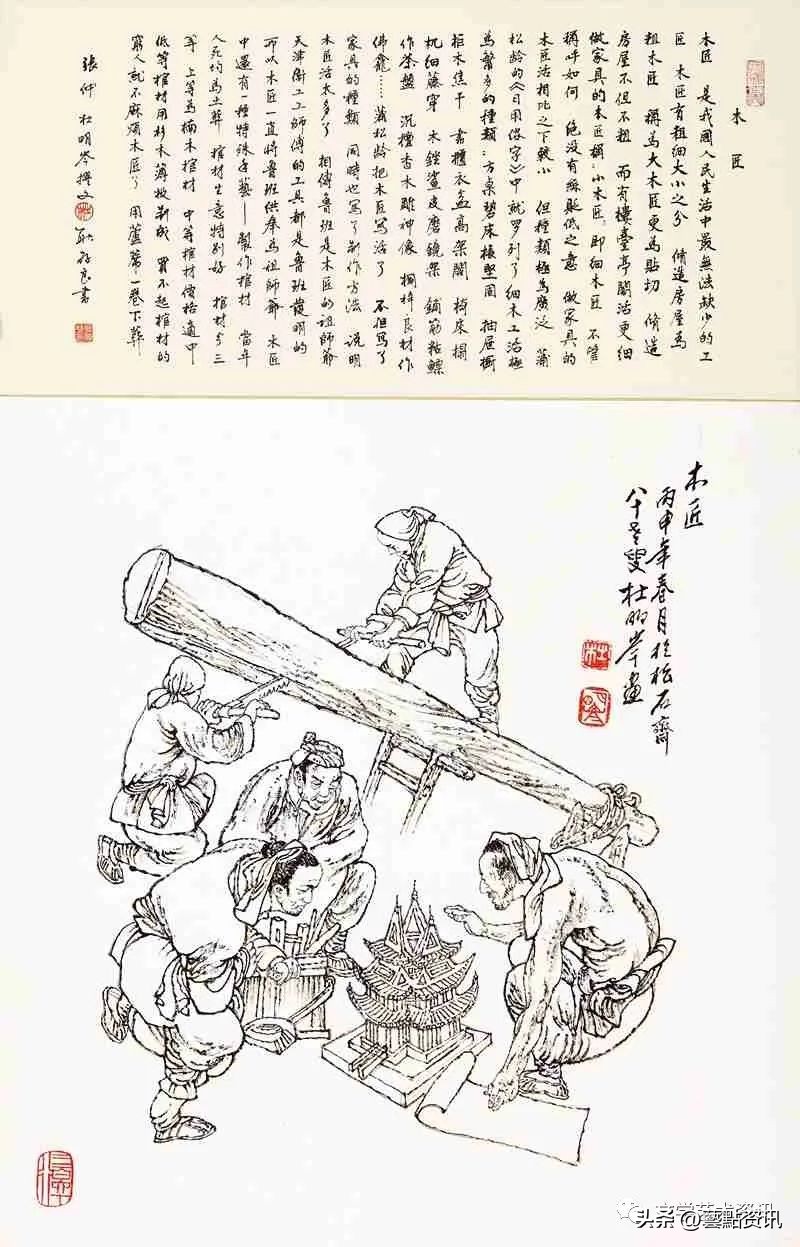 木匠
木匠 是我國人民生活中最無法缺少的工
匠 木匠有粗細大小之分 脩造房屋為
粗木匠 稱為大木匠更為貼切 脩造
房屋不但不粗 而有樓臺亭閣活更細
做家具的木匠稱:小木匠,即細木匠 不管
稱呼如何 絕没有貶低之意 做家具的
木匠活相比之下較小 但種類極為廣泛 蒲
松齡的《日用俗字》中就罗列了細木工活極
為繁多的種類:方桌床堅固 抽屉橱
柜木焦干 書櫃衣盆高架閣 椅床榻
杌細藤穿 木銼鯊皮磨鏡架 鋪筋粘鰾
作茶盤 沉檀香木雕神像 桐梓良材作
佛龕……蒲松龄把木匠写活了 不但写了
家具的種類 同時也写了制作方法 説明
木匠活太多了 相傳魯班是木匠的祖師爺
天津衛工工師傅的工具都是魯班發明的
所以木匠一直將魯班供奉為祖師爺 木匠
中還有一種特殊手藝——製作棺材 當年
人死均為土葬 棺材生意特别好 棺材分三
等 上等為楠木棺材 中等棺材價格適中
低等棺材用杉木薄板制成 買不起棺材的
窮人就不麻煩木匠了 用蘆席一卷下葬
張仲 杜明岑撰文 耿存良書
木匠
丙申年春月於松石齋
八十老叟杜明岑畫
头条@藝點资讯